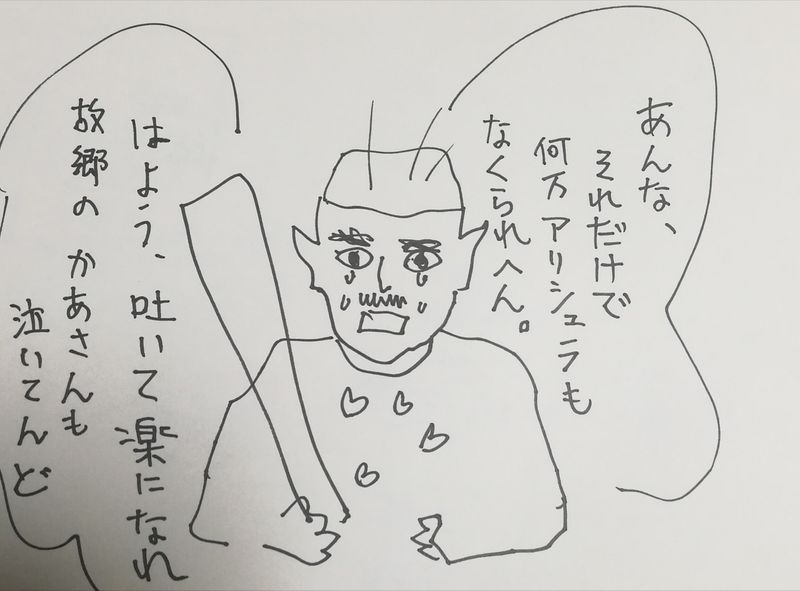 あんな、
それだけで
何万アリシュラも
なくられへん。
はよう、吐いて楽になれ
故郷のかあさんも
泣いてんど